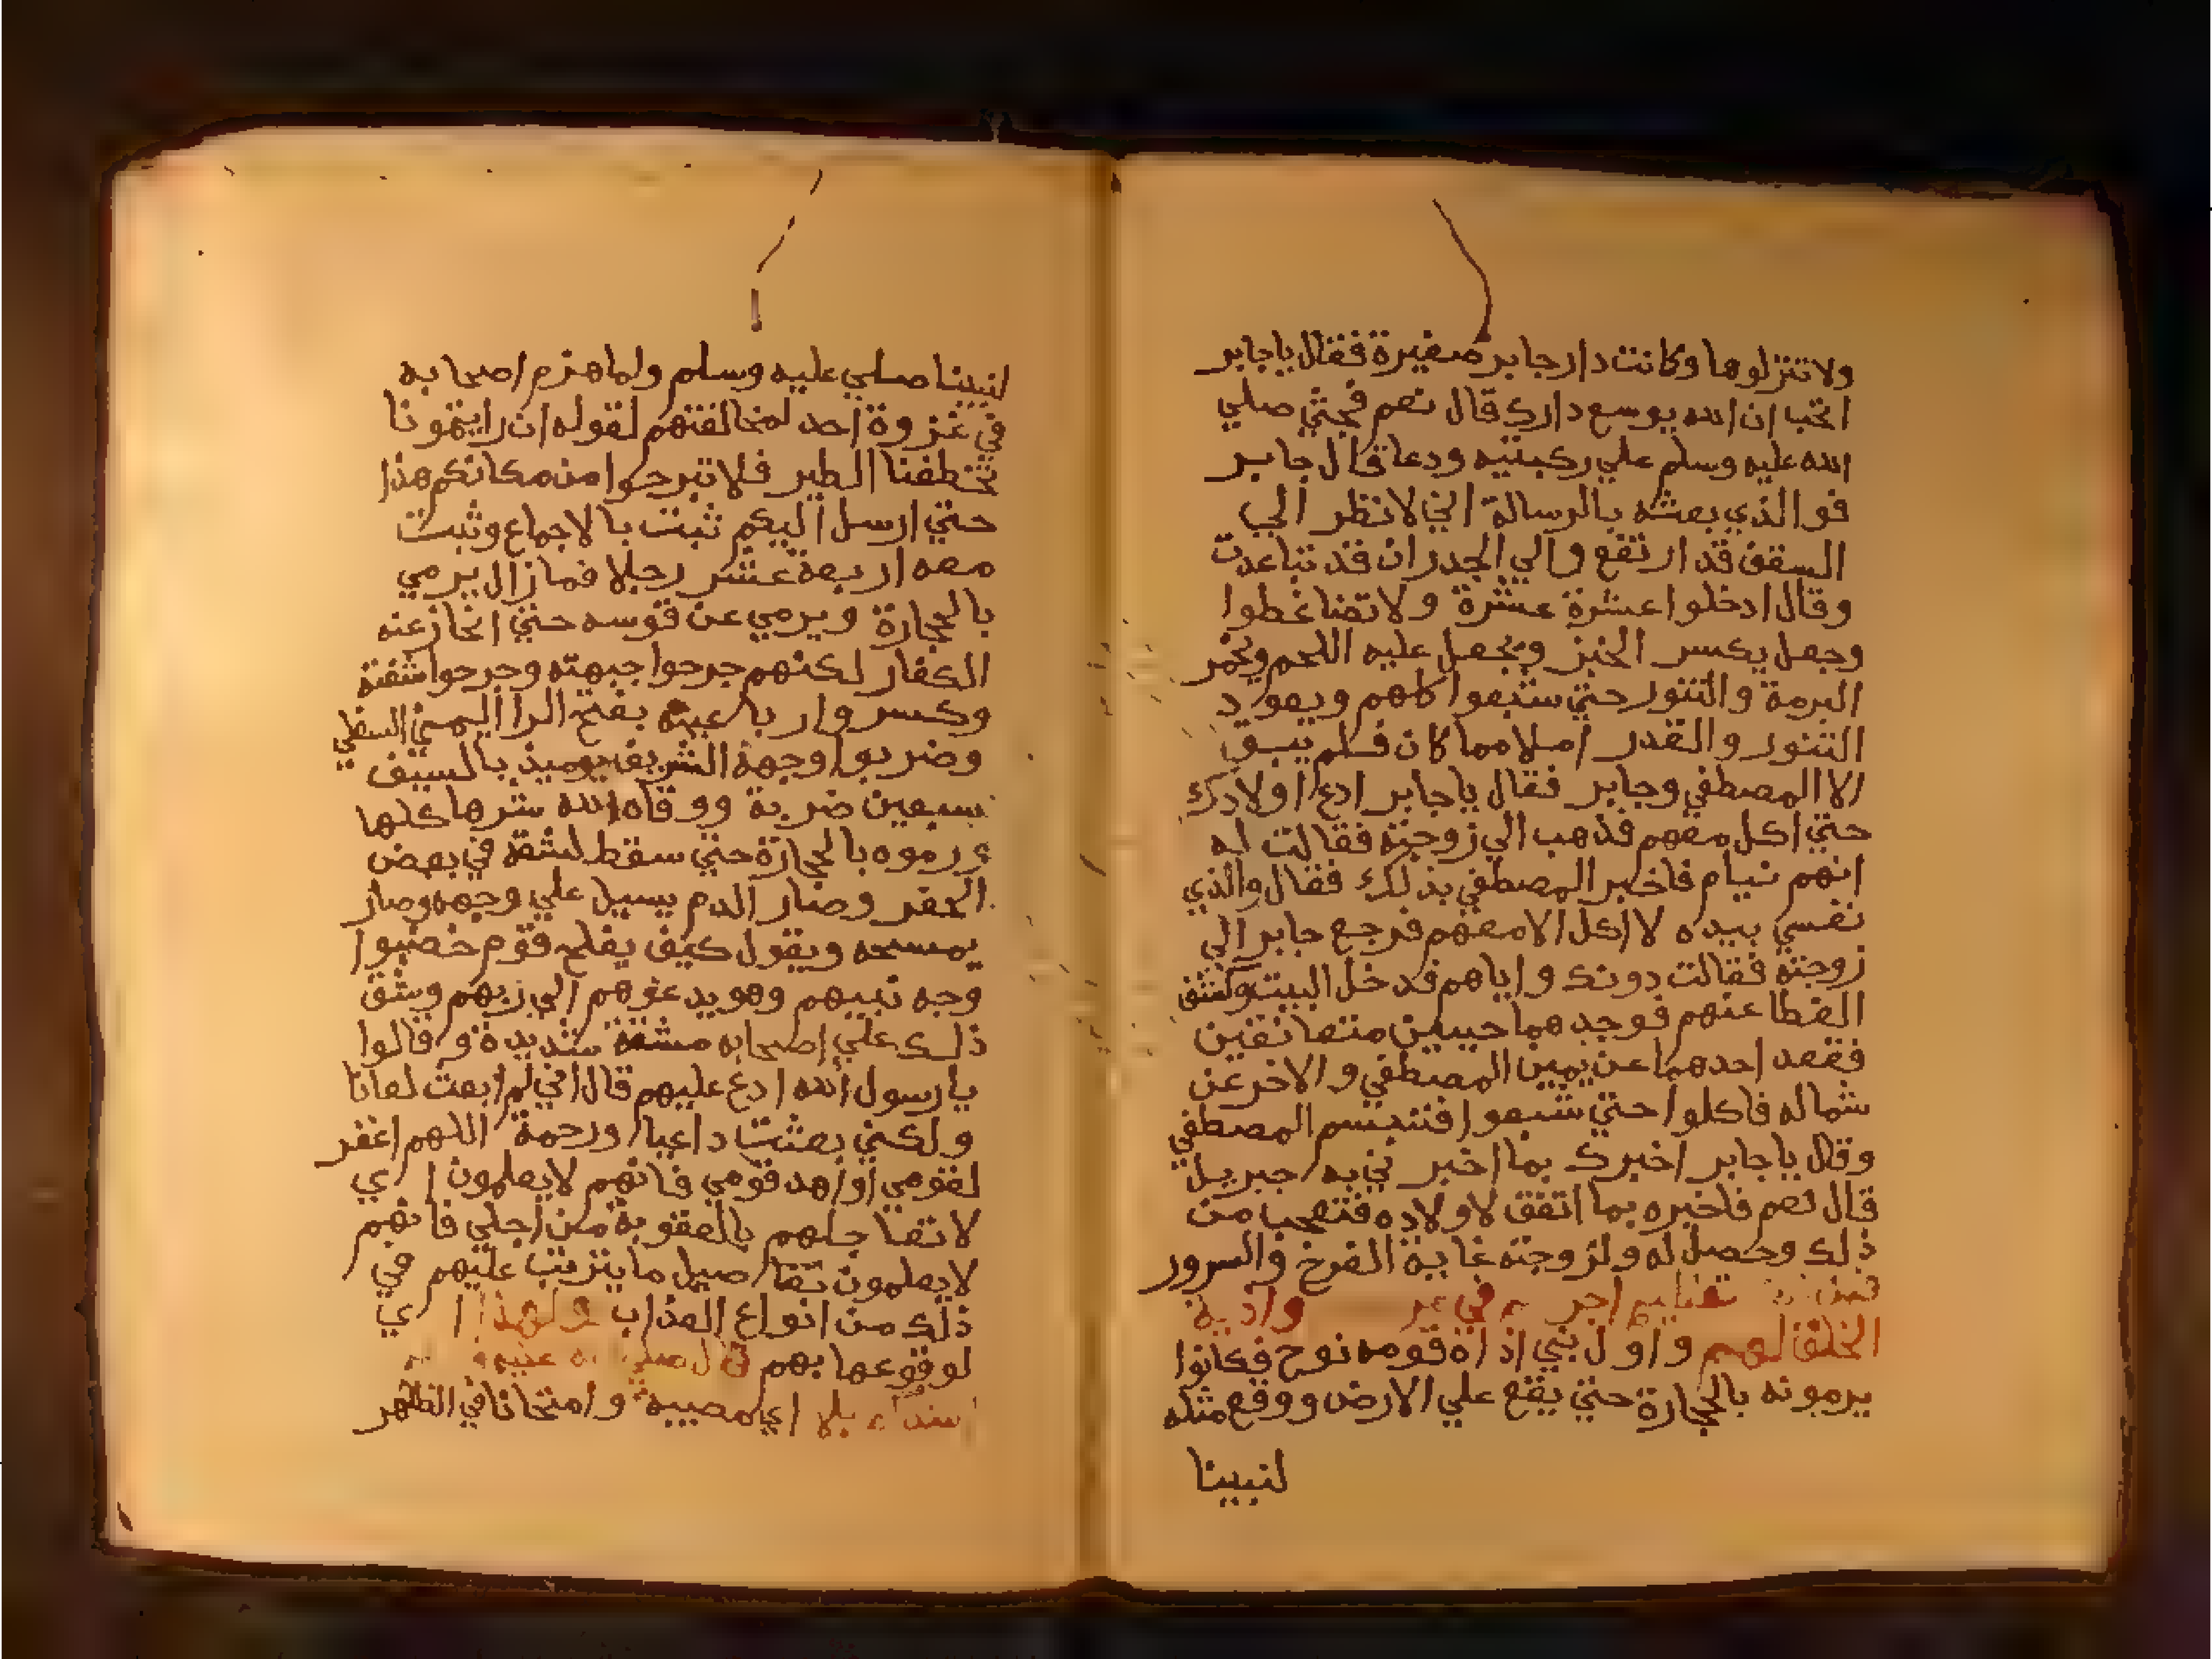 ولاتنزلوها وكانت دار جابر صغيرة فقال ياجابر
اتحب ان الله يوسع دارك قال نعم فجثي صلي
الله عليه وسلم علي ركبتيه ودعا قال جابر
فو الذي بعثه بالرسالة اني لانظر الي
السقف قد ارتفع والي الجدران قد تباعدت
وقال ادخلوا عشرة عشرة ولاتضاغطوا
وجعل يكسر الخبز ويجعل عليه اللحم ويخمر
البرمة والتنور حتي شبعوا كلهم ويعود
التنور والقدر املا مما كان فلم يبق
الا المصطفي وجابر فقال ياجابر ادع اولادك
حتي اكل معهم فذهب الي زوجته فقالت له
انهم نيام فاخبر المصطفي بذلك فقال والذي
نفسي بيده لا اكل الا معهم فرجع جابر الي
زوجته فقالت دونك واياهم فدخل البيت وكشف
الغطا عنهم فوجدهما حيين متعانقين
فقعد احدهما عن يمين المصطفي والاخر عن
شماله فاكلوا حتي شبعوا فتبسم المصطفي
وقال ياجابر اخبرك بما اخبر ني به جبريل
قال نعم فاخبره بما اتفق لاولاده فتعجب من
ذلك وحصل له ولزوجته غاية الفرح والسرور
تعظيم اجر في واذية
الخلق لهم واول نبي اذاه قومه نوح فكانوا
يرمونه بالحجارة حتي يقع علي الارض ووقع مثله
لنبينا
لنبينا صلي عليه وسلم ولما هزم اصحابه
في غزوة احد لمخالفتهم لقوله ان رايتمونا
تخطفنا الطير فلا تبرحوا من مكانكم هذا
حتي ارسل اليكم ثبت بالاجماع وثبت
معه اربعة عشر رجلا فمازال يرمي
بالحجارة ويرمي عن قوسه حتي انحاز عنه
الكفار لكنهم جرحوا جبهته وجرحوا شفته
وكسروا رباعيته بفتح الرا اليمني السفلي
وضربوا وجهه الشريف يوميذ بالسيف
سبعين ضربة ووقاه الله شرها كلها
ورموه بالحجارة حتي سقط لشقه في بعض
الحفر وصار الدم يسيل علي وجهه وصار
يمسحه ويقول كيف يفلح قوم خضبوا
وجه نبيهم وهو يدعوهم الي ربهم وشق
ذلك علي اصحابه مشقة شديدة وقالوا
يارسول الله ادع عليهم قال اني لم ابعث لعانا
ولكني بعثت داعيا ورحمة اللهم اغفر
لقومي او اهد قومي فانهم لايعلمون اي
لاتعاجلهم بالعقوبة من اجلي فانهم
لايعلمون تفاصيل مايترتب عليهم في
ذلك من انواع العذاب ولهذا اي
لوقوعها بهم قال صلي الله عليه
اشد بلا اي مصيبة وامتحانا في الظاهر